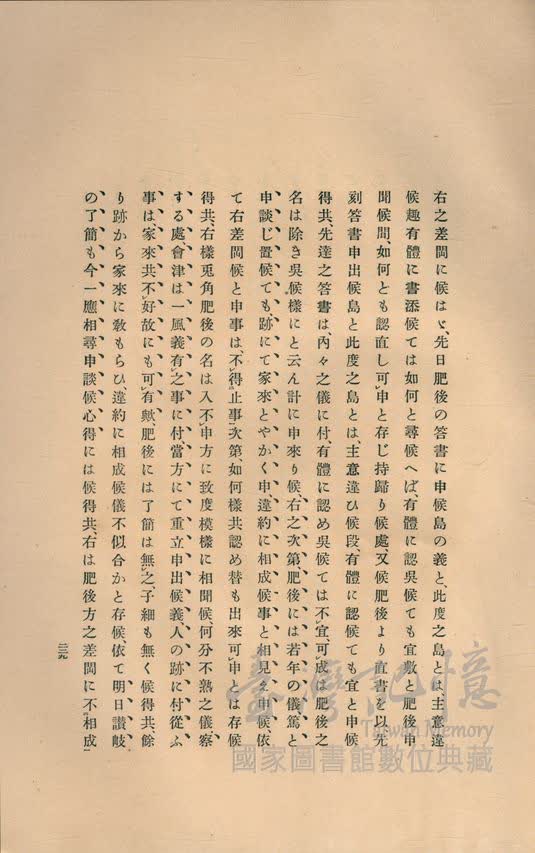 右之差閊に候はゞ、先日肥後の答書に申候島の義と、此度之島とは、主意違
候趣有體に書添候ては如何と尋候へば、有體に認呉候ても宜敷と肥後申
聞候間、如何とも認直し可申と存じ持歸り候處、又候肥後より直書を以先
刻答書申出候島と此度之島とは、主意違ひ候段、有體に認候ても宜と申候
得共、先達之答書は、內々之儀に付、有體に認め呉候ては不宜、可成は肥後之
名は除き呉候樣にと云ん計に申來り候、右之次第、肥後には若年の儀、篤と
申談じ置候ても、跡にて家來とやかく申違約に相成候事と相見え申候、依
て右差閊候と申事は、不得止事次第、如何樣共認め替も出來可申とは存候
得共、右樣兎角肥後の名は入不申方に致度模樣に相聞候、何分不熟之儀、察
する處、會津は一風義有之事に付、當方にて重立申出候義、人の跡に付從ふ
事は、家來共不好故にも可有歟、肥後には了簡は無之、子細も無く候得共、餘
り跡から家來に敎もらひ、違約に相成候儀不似合かと存候、依て明日讃岐
の了簡も今一應相尋申談候心得には候得共、右は肥後方之差閊に不相成
二三九
臺灣記憶
Taiwan Memory
國家圖書館數位典藏